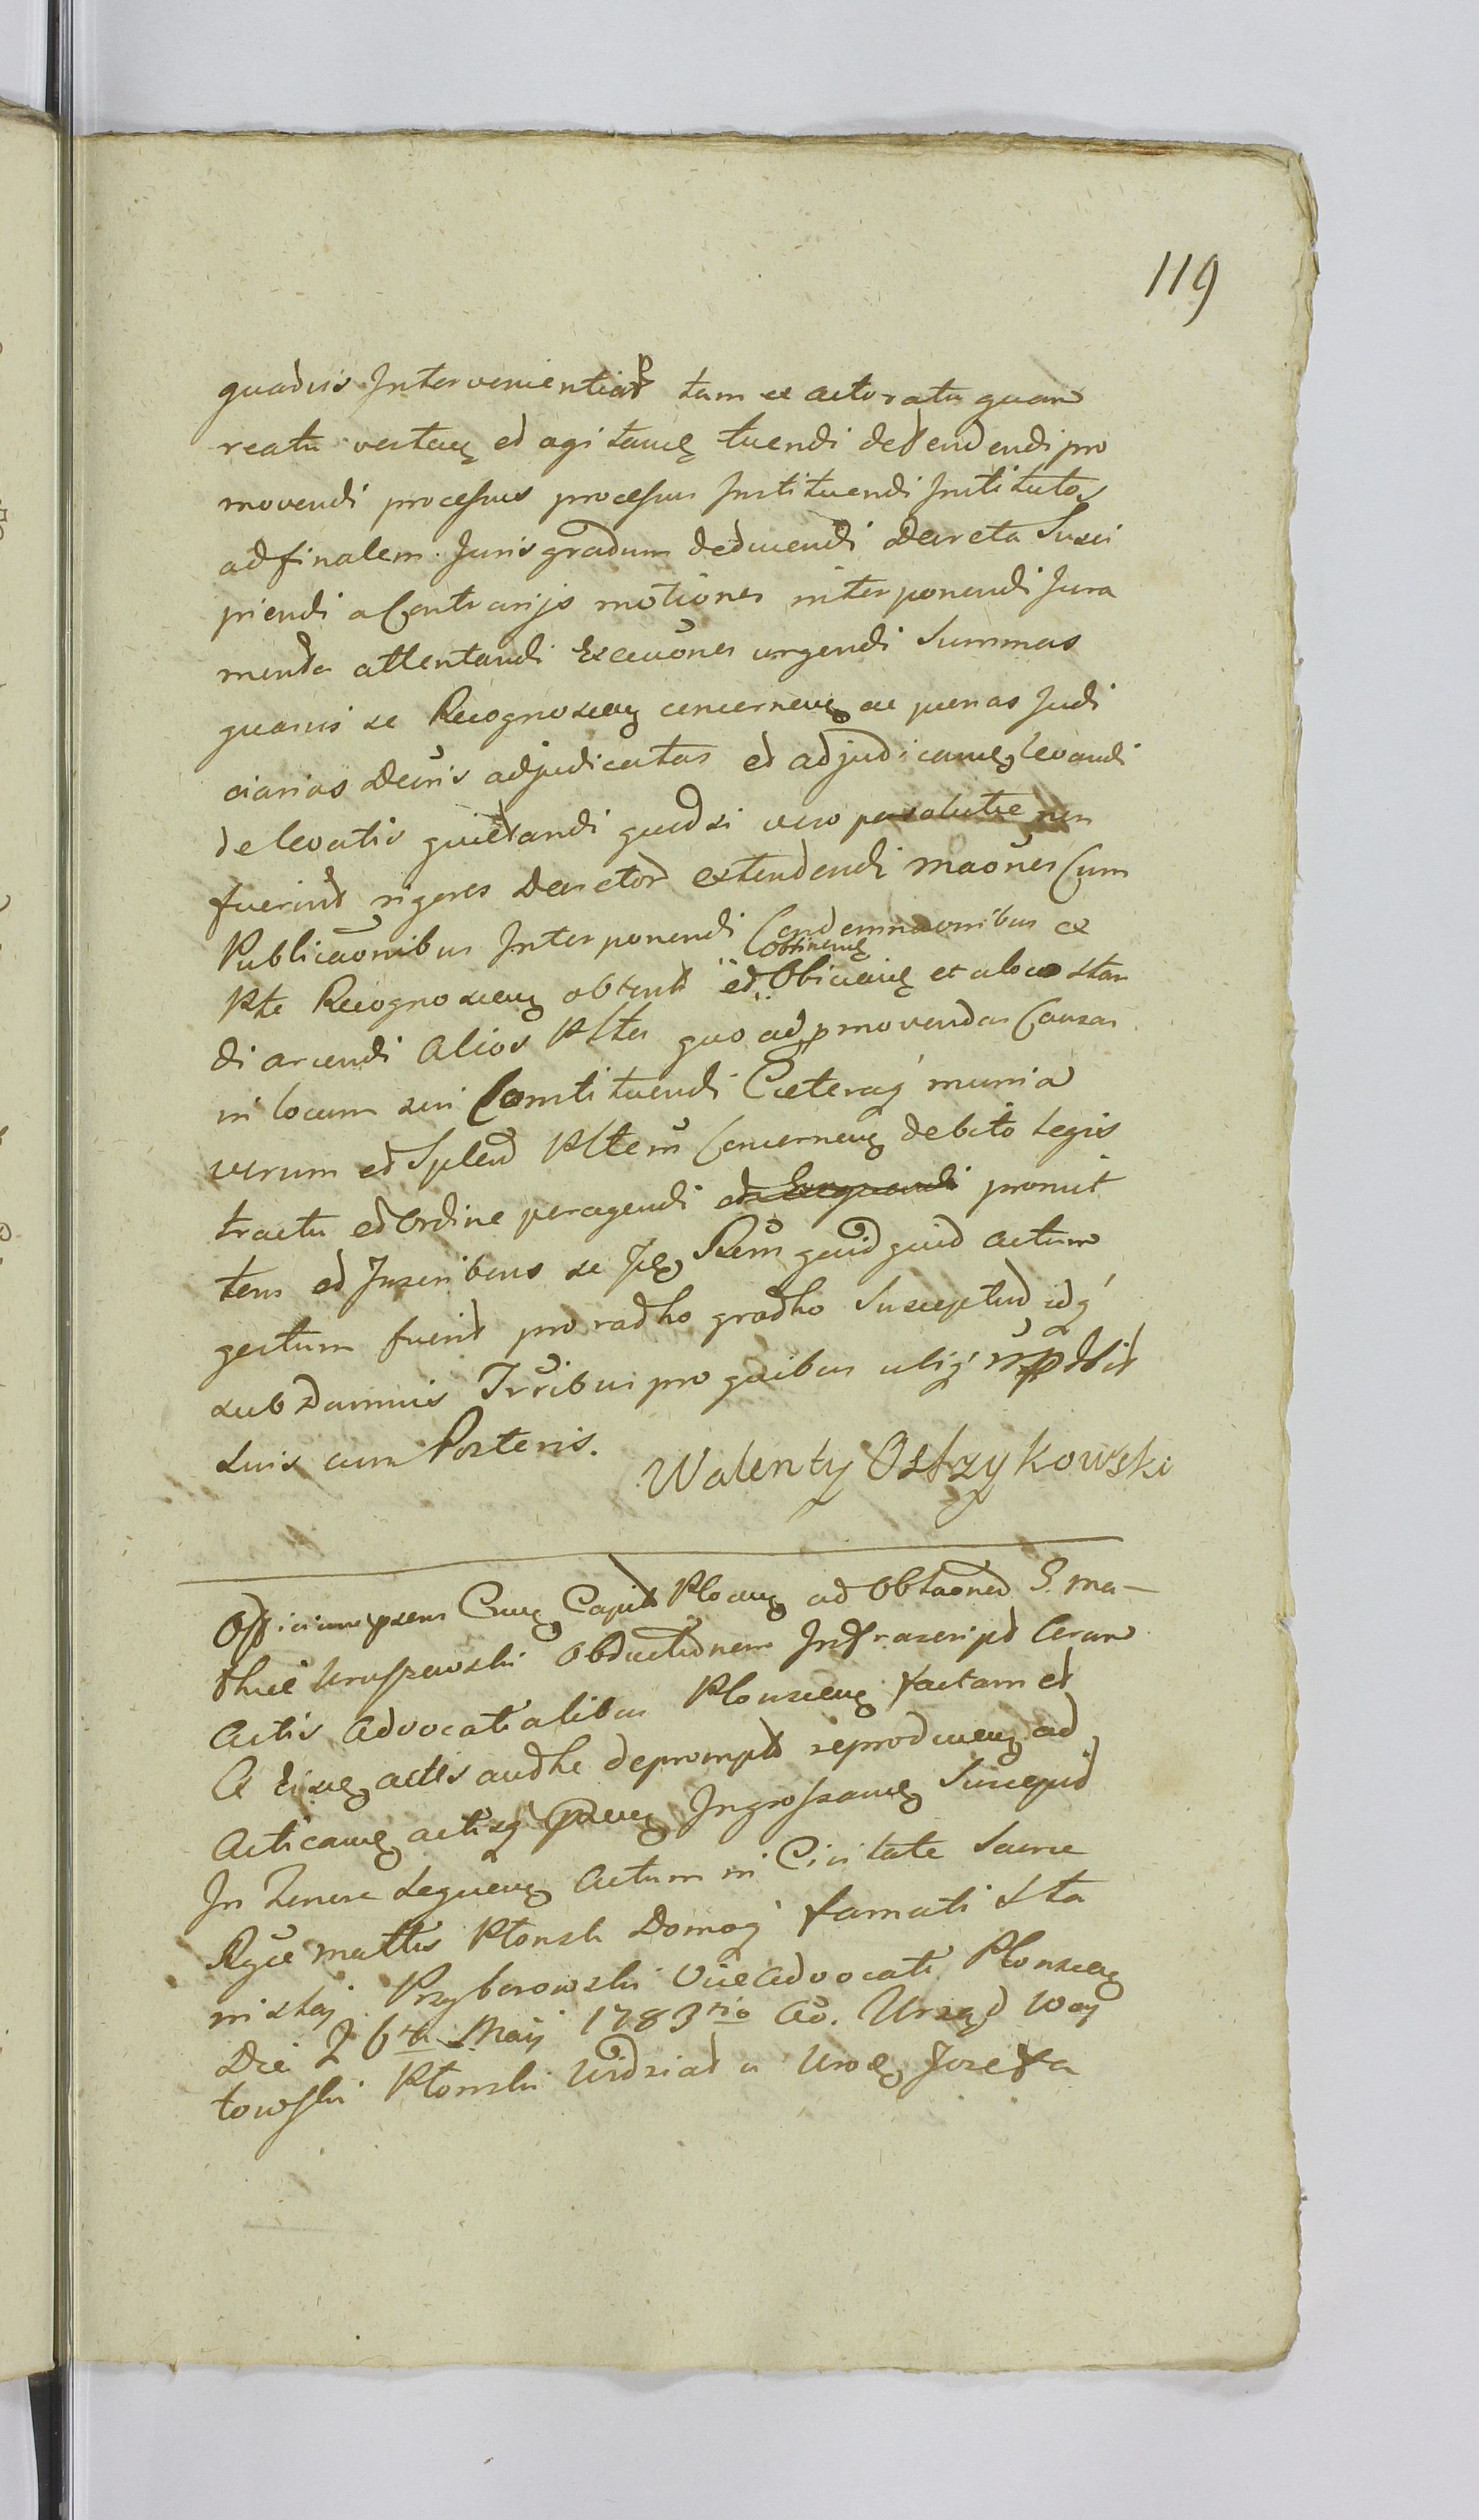 119
quaevis Intervenientiar tam ex actoratu quam
reatu vertend et agitand tuendi defendendi pro
movendi processus processus Instituendi Institutos
ad finalem Juris gradum deducendi Decreta Susci
piendi a Contrarijs motiones interponendi Jura
menta attentandi Execuones urgendi Summas
quasvis se Recognoscen concernen ac poenas Judi
ciarias Decris adjudicatas et adjudicand levandi
de levatis quietandi quod si vero persolutae non
fuerint rigores Decretor extendendi maones Cum
Publicaonibus Interponendi Condemnaonibus ex
Pte Recognoscen obtent et obtinend et a loco stan
di arcendi Alios Pltes quo ad pmovendas Causas
in locum sui Constituendi Caeteraq munia
verum et Splend Pltem Concernen debito Legis
tractu et Ordine peragendi et Exequendi promit
tens et Inscribens se Ips Rem quidquid actum
gestum fuerit pro radho gradho Suscepturd idq
sub Damnis Trribus pro quibus
suis cum Posteris.
Walenty Ostrzykowski
Officium psens Cap Ploc ad Oblaoned G. Ma-
thiae Kruszewski Obductionem Infrascript Coram
Actis Advocatialibus Plonscen factam et
Ex eisd actis audhe deprompt reproducen ad
Acticand actisq psen Ingrossand Suscepit
In Tenore sequen Actum in Civitate Sacrae
Rgiae Mattis Płonsk Domoq famati Sta
nislaj Przyborowski ViceAdvocati Plonscen
Die 26ta Maij 1783tio Ao. Urząd Woy
towski Płonski Widział u Urod Jozefa